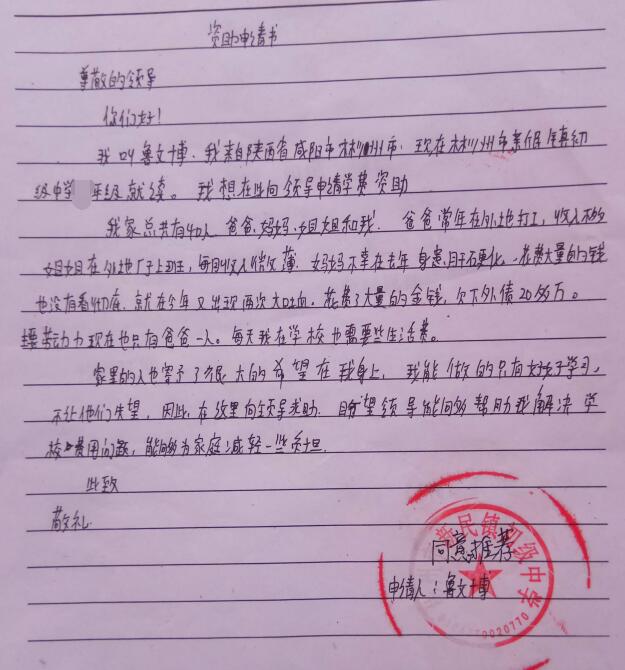 资助申请书
尊敬的领导
你们好!
我叫鲁文博,我来自陕西省咸阳市彬州市,现在彬州市新民镇初
级中学 年级就读。我想在此向领导申请学费资助
我家总共有4口人 爸爸、妈妈、姐姐和我。爸爸常年在外地打工,收入不多
姐姐在外地厂子上班,每月收入微薄。妈妈不幸在去年身患肝硬化,花费大量的钱
也没有看彻底,就在今年又出现两次大吐血。花费了大量的金钱,欠下外债20多万。
主要劳动力现在也只有爸爸一人。每天我在学校也需要些生活费。
家里的人也寄予了很大的希望在我身上,我能做的只有好好学习,
不让他们失望,因此,在这里向领导求助,盼望领导能够帮助我解决学
校费用问题,能够为家庭减轻一些负担.
此致
敬礼.
同意推荐
申请人:鲁文博
新民镇初级中学